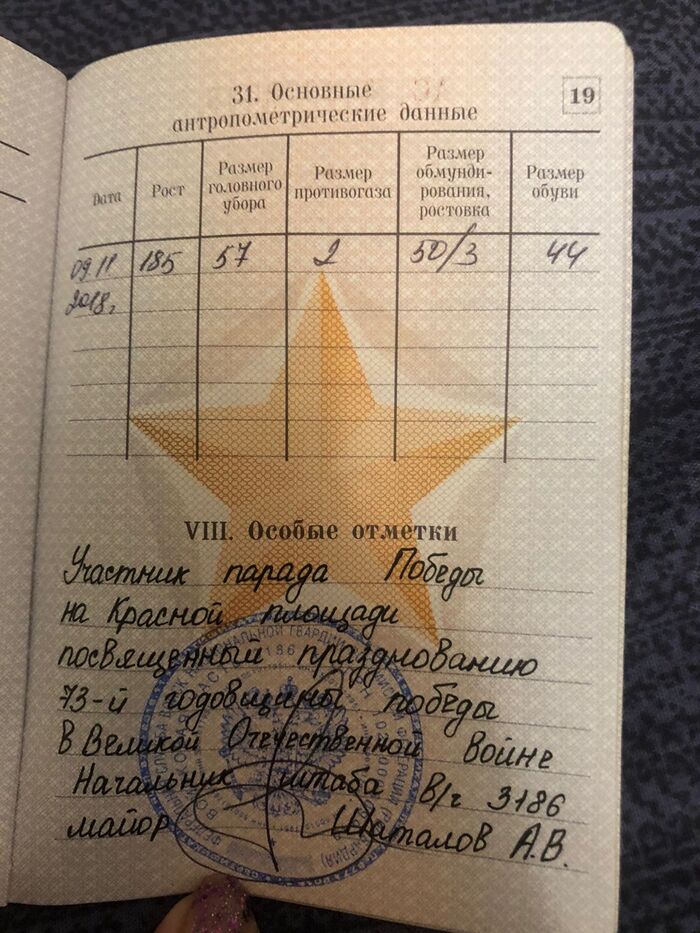 31. Основные
антропометрические данные
19
Дата Рост Размер головного убора Размер противогаза Размер обмунди- рования, ростовка Размер обуви
09.11 185 57 2 50/3 44
2018г
VIII. Особые отметки
Участник парада Победы
на Красной площади
посвященный празднованию
73-й годовщины победы
в Великой Отечественной войне
Начальник штаба в/ч 3186
майор Шаталов А.В.